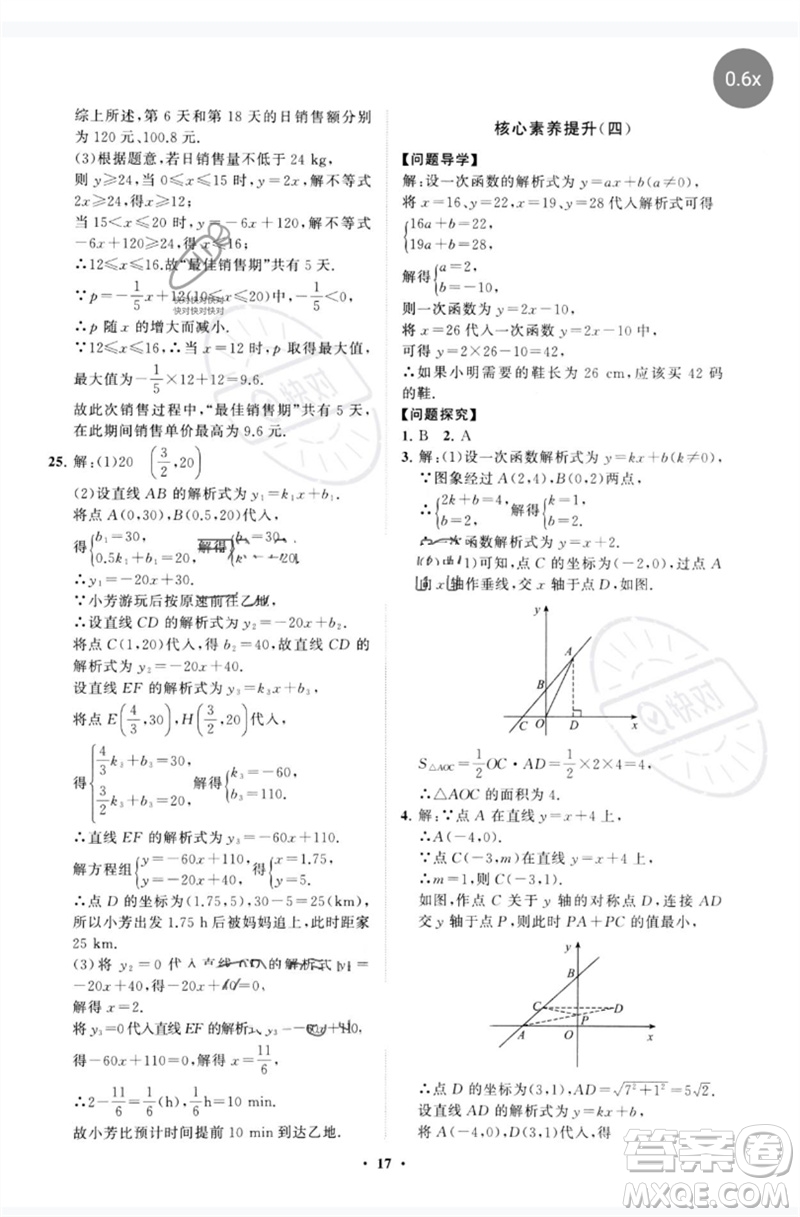 0.6x
综上所述,第 6 天和第 18 天的日销售额分别
为 120 元、100.8 元.
(3)根据题意,若日销售量不低于 24 kg,
则 y≥24,当 0≤x≤15 时,y=2x,解不等式
2x≥24,得 x≥12;
当 15<x≤20 时,y=-6x+120,解不等式
-6x+120≥24,得 x≤16;
∴12≤x≤16.故“最佳销售期”共有 5 天.
∵p=-1/5x+12(10≤x≤20)中,-1/5<0,
∴p 随 x 的增大而减小.
∵12≤x≤16,∴当 x=12 时,p 取得最大值,
最大值为-1/5×12+12=9.6.
故此次销售过程中,“最佳销售期”共有 5 天,
在此期间销售单价最高为 9.6 元.
25. 解:(1)20 (3/2,20)
(2)设直线 AB 的解析式为 y₁=k₁x+b₁.
将点 A(0,30),B(0.5,20)代入,
得{b₁=30, 0.5k₁+b₁=20, 解得{b₁=30, k₁=-20.
∴y₁=-20x+30.
∵小芳游玩后按原速前往乙地,
∴设直线 CD 的解析式为 y₂=-20x+b₂.
将点 C(1,20)代入,得 b₂=40,故直线 CD 的
解析式为 y₂=-20x+40.
设直线 EF 的解析式为 y₃=k₃x+b₃,
将点 E(4/3,30),H(3/2,20)代入,
得{4/3k₃+b₃=30, 3/2k₃+b₃=20, 解得{k₃=-60, b₃=110.
∴直线 EF 的解析式为 y₃=-60x+110.
解方程组{y=-60x+110, y=-20x+40, 得{x=1.75, y=5.
∴点 D 的坐标为(1.75,5),30-5=25(km),
所以小芳出发 1.75 h 后被妈妈追上,此时距家
25 km.
(3)将 y₂=0 代入直线 的解析式
-20x+40,得-20x+40=0,
解得 x=2.
将 y₃=0代入直线 EF 的解析
得-60x+110=0,解得 x=11/6.
∴2-11/6=1/6(h),1/6h=10 min.
故小芳比预计时间提前 10 min 到达乙地.
核心素养提升(四)
【问题导学】
解:设一次函数的解析式为 y=ax+b(a≠0),
将 x=16,y=22,x=19,y=28 代入解析式可得
{16a+b=22, 19a+b=28,
解得{a=2, b=-10,
则一次函数的解析式为 y=2x-10,
将 x=26 代入一次函数 y=2x-10 中,
可得 y=2×26-10=42.
∴如果小明需要的鞋长为 26 cm,应该买 42 码
的鞋.
【问题探究】
1. B 2. A
3. 解:(1)设一次函数解析式为 y=kx+b(k≠0),
∵图象经过 A(2,4),B(0,2)两点,
∴{2k+b=4, b=2, 解得{k=1, b=2.
函数解析式为 y=x+2.
1)可知,点 C 的坐标为(-2,0),过点 A
向 x 轴作垂线,交 x 轴于点 D,如图.
y
A
B
C
O
D
x
S△AOC=1/2OC·AD=1/2×2×4=4,
∴△AOC 的面积为 4.
4. 解:∵点 A 在直线 y=x+4 上,
∴A(-4,0).
∵点 C(-3,m)在直线 y=x+4 上,
∴m=1,则 C(-3,1).
如图,作点 C 关于 y 轴的对称点 D,连接 AD
交 y 轴于点 P,则此时 PA+PC 的值最小.
y
C
D
P
A
O
x
∴点 D 的坐标为(3,1),AD=√(7²+1²)=5√2.
设直线 AD 的解析式为 y=kx+b,
将 A(-4,0),D(3,1)代入,得
• 17 •
快对快对快对
快对快对快对
快对
快对
答案圈
MXQE.COM